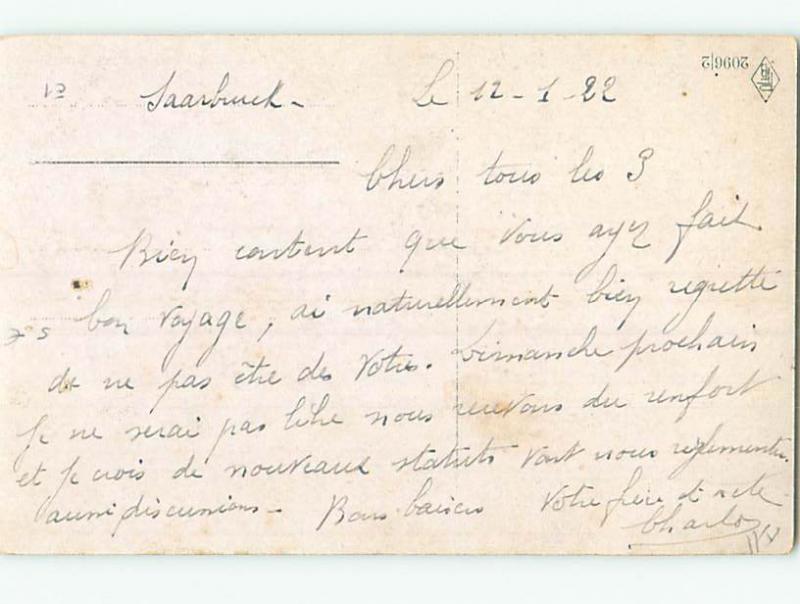 2096|2
Saarbruck - Le 12 - 1 - 22
Chers tous les 3
Bien content que vous ayez fait
bon voyage, ai naturellement bien regretté
de ne pas être des vôtres. Dimanche prochain
je ne serai pas libre nous recevons du renfort
et je crois de nouveaux statuts vont nous réglementer
aussi discussions - Bons baisers Votre frère et
Charlo